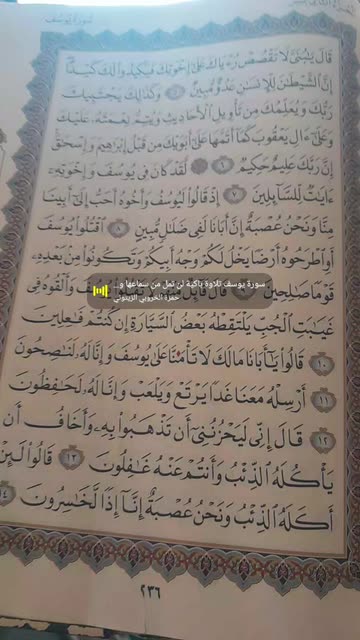 سورة يوسف
قَالَ يَٰبُنَىَّ لَا تَقۡصُصۡ رُءۡيَاكَ عَلَىٰٓ إِخۡوَتِكَ فَيَكِيدُواْ لَكَ كَيۡدًا
إِنَّ ٱلشَّيۡطَٰنَ لِلۡإِنسَٰنِ عَدُوٌّ مُّبِينٌ ٥ وَكَذَٰلِكَ يَجۡتَبِيكَ
رَبُّكَ وَيُعَلِّمُكَ مِن تَأۡوِيلِ ٱلۡأَحَادِيثِ وَيُتِمُّ نِعۡمَتَهُۥ عَلَيۡكَ
وَعَلَىٰٓ ءَالِ يَعۡقُوبَ كَمَآ أَتَمَّهَا عَلَىٰٓ أَبَوَيۡكَ مِن قَبۡلُ إِبۡرَٰهِيمَ وَإِسۡحَٰقَ
إِنَّ رَبَّكَ عَلِيمٌ حَكِيمٌ ٦ لَّقَدۡ كَانَ فِى يُوسُفَ وَإِخۡوَتِهِۦٓ
ءَايَٰتٌ لِّلسَّآئِلِينَ ٧ إِذۡ قَالُواْ لَيُوسُفُ وَأَخُوهُ أَحَبُّ إِلَىٰٓ أَبِينَا
مِنَّا وَنَحۡنُ عُصۡبَةٌ إِنَّ أَبَانَا لَفِى ضَلَٰلٍ مُّبِينٍ ٨ ٱقۡتُلُواْ يُوسُفَ
أَوِ ٱطۡرَحُوهُ أَرۡضًا يَخۡلُ لَكُمۡ وَجۡهُ أَبِيكُمۡ وَتَكُونُواْ مِنۢ بَعۡدِهِۦ
سورة يوسف تلاوة باكية لن تمل من سماعها و...
حمزة الخروبي الزيتوني
قَوۡمًا صَٰلِحِينَ قَالَ قَآئِلٌ وَأَلۡقُوهُ فِى
غَيَٰبَتِ ٱلۡجُبِّ يَلۡتَقِطۡهُ بَعۡضُ ٱلسَّيَّارَةِ إِن كُنتُمۡ فَٰعِلِينَ
١٠ قَالُواْ يَٰٓأَبَانَا مَالَكَ لَا تَأۡمَ۬نَّا عَلَىٰ يُوسُفَ وَإِنَّا لَهُۥ لَنَٰصِحُونَ
١١ أَرۡسِلۡهُ مَعَنَا غَدًا يَرۡتَعۡ وَيَلۡعَبۡ وَإِنَّا لَهُۥ لَحَٰفِظُونَ
١٢ قَالَ إِنِّى لَيَحۡزُنُنِىٓ أَن تَذۡهَبُواْ بِهِۦ وَأَخَافُ أَن
يَأۡكُلَهُ ٱلذِّئۡبُ وَأَنتُمۡ عَنۡهُ غَٰفِلُونَ ١٣ قَالُواْ لَئِنۡ
أَكَلَهُ ٱلذِّئۡبُ وَنَحۡنُ عُصۡبَةٌ إِنَّآ إِذًا لَّخَٰسِرُونَ ١٤
٢٣٦